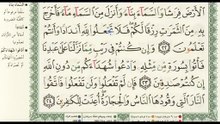 الْأَرْضَ فِرَاشًا وَالسَّمَاءَ بِنَاءً وَأَنزَلَ مِنَ السَّمَاءِ مَاءً فَأَخْرَجَ
بِهِ مِنَ الثَّمَرَاتِ رِزْقًا لَّكُمْ فَلَا تَجْعَلُوا لِلَّهِ أَندَادًا وَأَنتُمْ
تَعْلَمُونَ ٢٢ وَإِن كُنتُمْ فِي رَيْبٍ مِّمَّا نَزَّلْنَا عَلَىٰ عَبْدِنَا
فَأْتُوا بِسُورَةٍ مِّن مِّثْلِهِ وَادْعُوا شُهَدَاءَكُم مِّن دُونِ اللَّهِ
إِن كُنتُمْ صَٰدِقِينَ ٢٣ فَإِن لَّمْ تَفْعَلُوا وَلَن تَفْعَلُوا فَاتَّقُوا
النَّارَ الَّتِي وَقُودُهَا النَّاسُ وَالْحِجَارَةُ أُعِدَّتْ لِلْكَٰفِرِينَ ٢٤